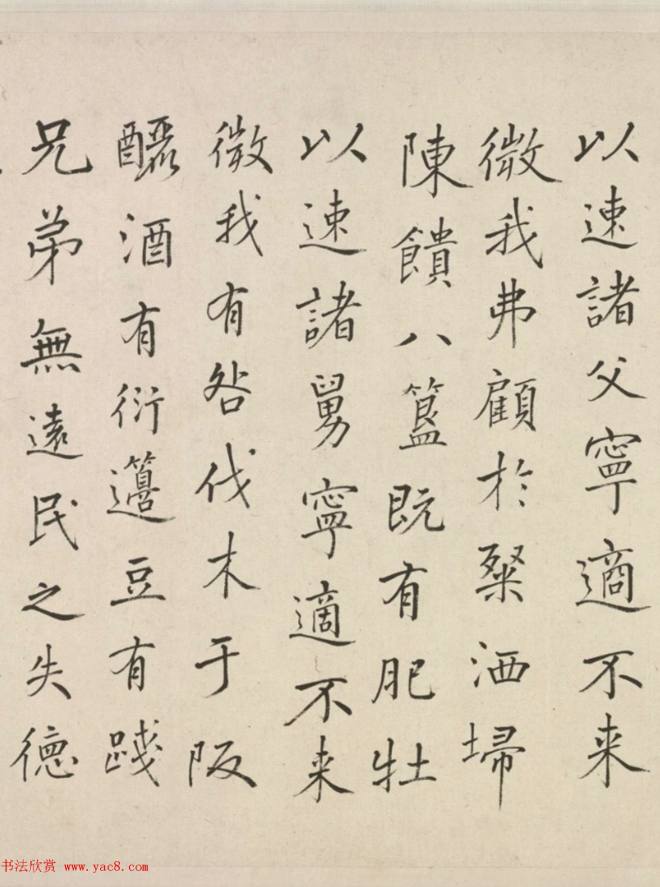 以速諸父寧適不来
微我弗顧於粲洒埽
陳饋八簋既有肥牡
以速諸舅寧適不来
微我有咎伐木于阪
釃酒有衍籩豆有踐
兄弟無遠民之失德
书法欣赏 www.yac8.com